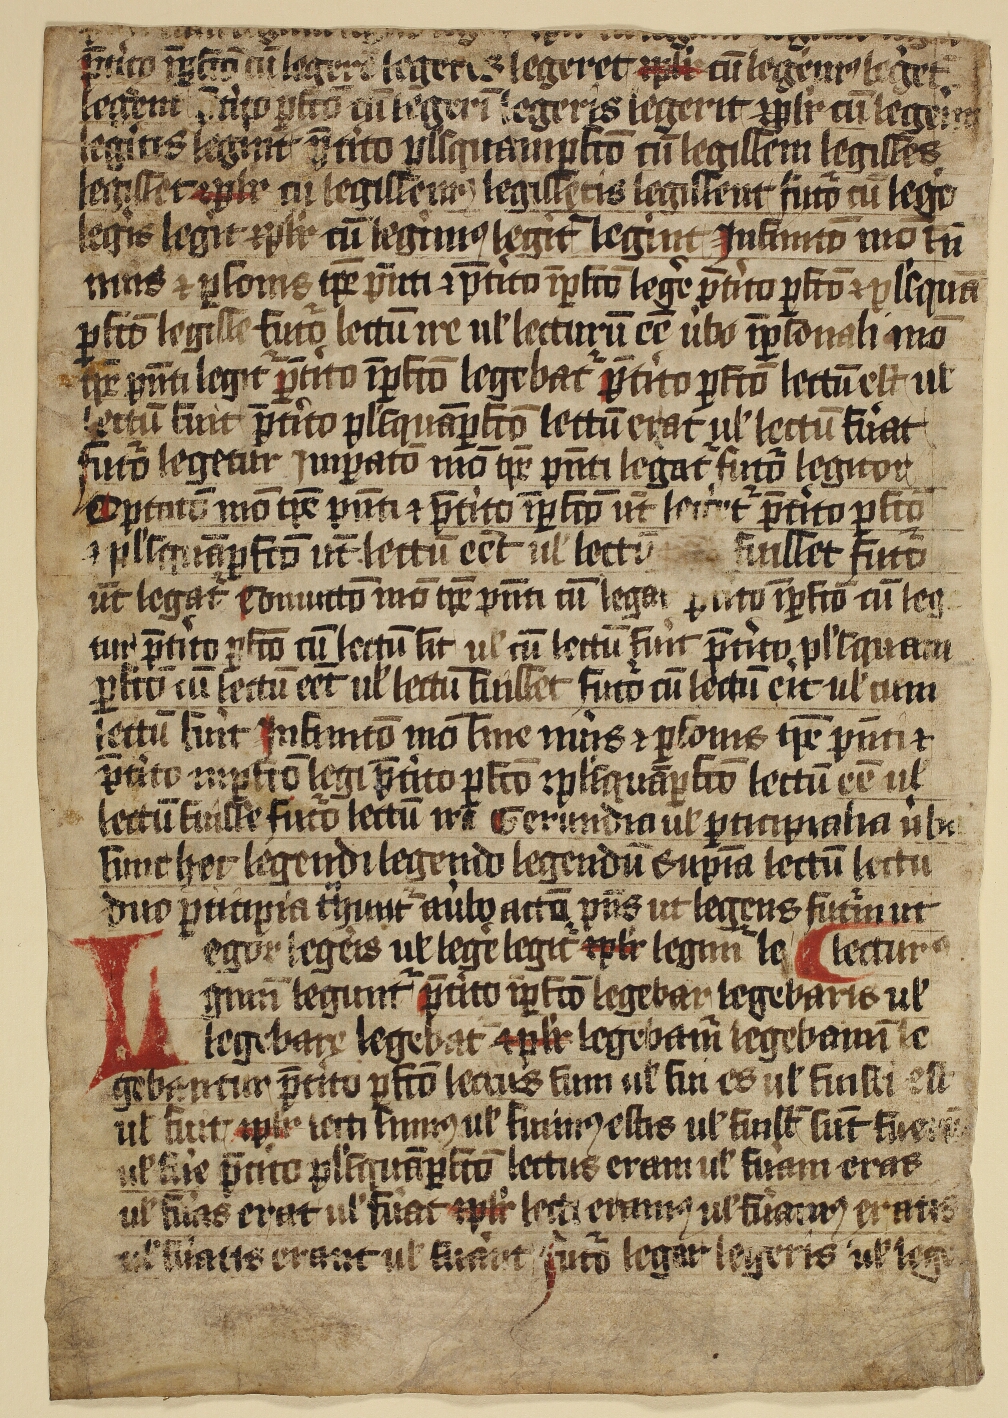 p̄tito īp̄fc̄o cū legerē legeres legeret ⁊plr̄ cū legem⁹ leget̄
legēnt p̄tito pfc̄o cū legerī legeris legerit ⁊plr̄ cū legeim⁹
legitis legint p̄tito plsquampfc̄o cū legissem legisses
legisset ⁊plr̄ cū legissem⁹ legissetis legissent futō cū lege
legis legit ⁊plr̄ cū legim⁹ legit̄ legint Infinito mō sū
mis ⁊ p̱sonis tp̄e p̄nti ⁊ p̄tito īp̄fc̄o legē p̄tito pfc̄o ⁊ plsquā
pfc̄o legisse futō lectū ire ul̄ lecturū ēē ūbo īp̱sonali mō
tp̄e p̄nti legit̄ p̄tito īp̄fc̄o legebat̄ p̄tito pfc̄o lectū est ul̄
lectū fuit p̄tito plsquāpfc̄o lectū erat ul̄ lectū fūat
futō legetur Impatō mō tp̄e p̄nti legat̄ futō legitor
Optatō mō tp̄e p̄nti ⁊ p̄tito īp̄fc̄o ūt p̄tito pfc̄o
⁊ plsquāpfc̄o ūt lectū eēt ul̄ lectū fuisset futō
ūt legat̄ Coniūctō mō tp̄e p̄nti cū legat īp̄fc̄o cū leg
tur p̄tito pfc̄o cū lectū sit ul̄ cū lectū fuīt p̄tito plsquam
pfc̄o cū lectū eēt ul̄ lectū fuisset futō cū lectū eīt ul̄ cum
lectū fuīt Infinitō mō sine nūis ⁊ p̱sonis tp̄e p̄nti ⁊
p̄tito inpfc̄o legi p̄tito pfc̄o ⁊plsquāpfc̄o lectū ēē ul̄
lectū fuisse futō lectū iri Gerundia ul̄ pticipialia ūba
sunt hec legendi legendo legendū Supīa lectū lectu
duo pticipia t̄hunt̄ a ūbo actō p̄ns ut legens futm̄ ut
egor legeis ul̄ legē legit̄ ⁊plr̄ legim̄ le lectur⁹
gim̄ legunt̄ p̄tito īp̄fc̄o legebar legebaris ul̄
legebare legebat̄ ⁊plr̄ legebam̄ legebamī le
gebantur p̄tito pfc̄o lectus sum ul̄ fui es ul̄ fuisti est
ul̄ fuit ⁊plr̄ lecti sum⁹ ul̄ fuim⁹ estis ul̄ fuist̄ sūt
ul̄ fūe p̄tito plsquāpfc̄o lectus eram ul̄ fūam eras
ul̄ fūas erat ul̄ fūat ⁊plr̄ lecti eram⁹ ul̄ fūam⁹ eratis
ul̄ fūatis erant ul̄ fūant futō legar legeris ul̄ lege